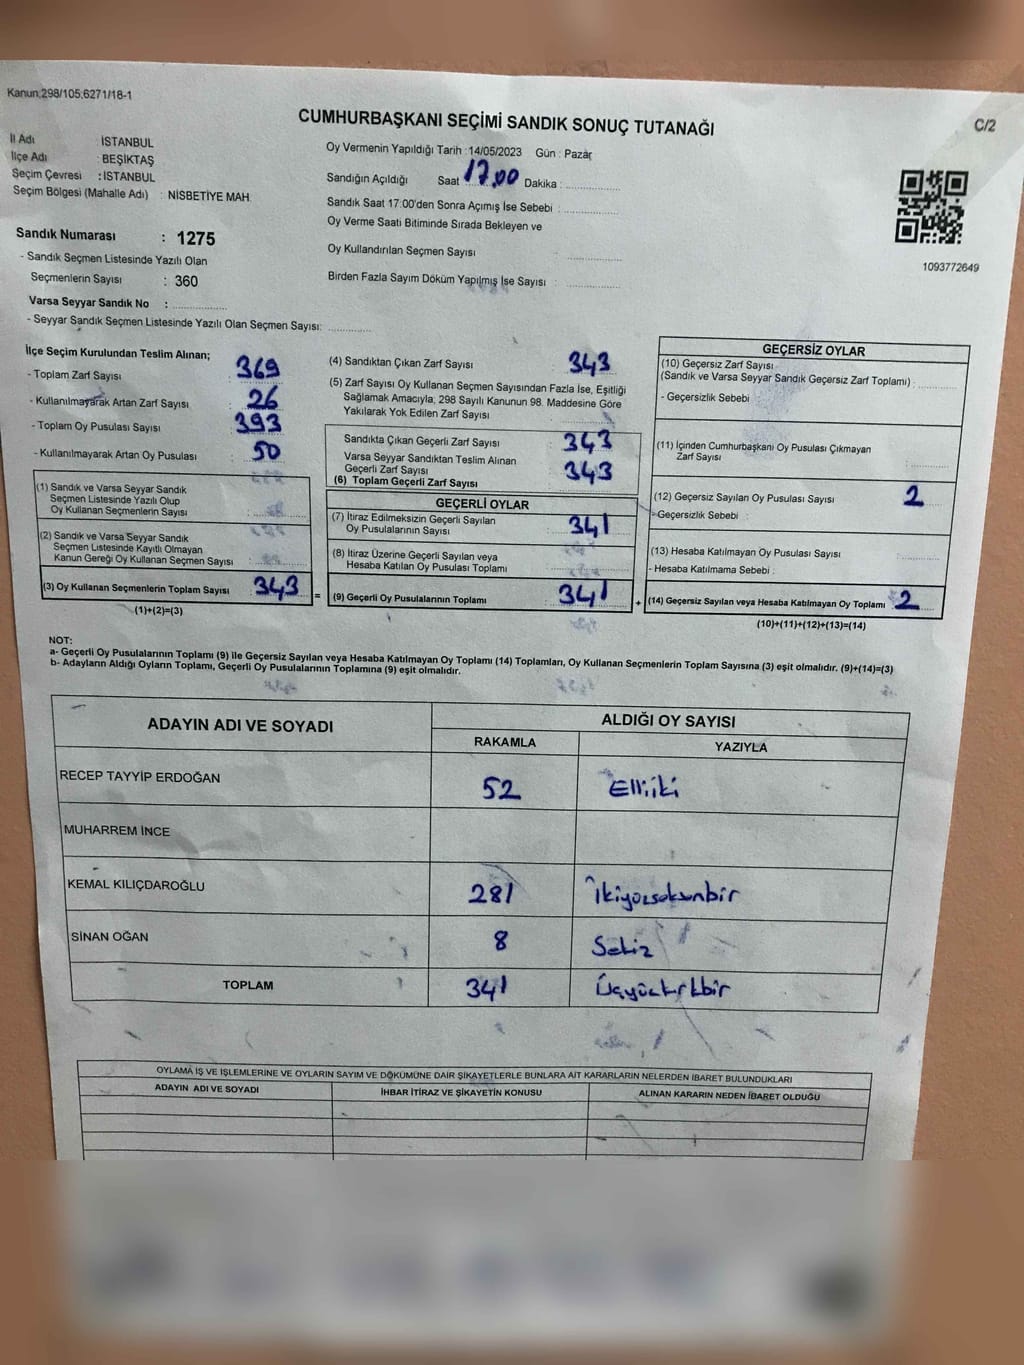 Kanun:298/105;6271/18-1
CUMHURBAŞKANI SEÇİMİ SANDIK SONUÇ TUTANAĞI
C/2
İl Adı : İSTANBUL
İlçe Adı : BEŞİKTAŞ
Seçim Çevresi : İSTANBUL
Seçim Bölgesi (Mahalle Adı) : NİSBETİYE MAH.
Sandık Numarası : 1275
- Sandık Seçmen Listesinde Yazılı Olan
Seçmenlerin Sayısı : 360
Varsa Seyyar Sandık No : ..............
- Seyyar Sandık Seçmen Listesinde Yazılı Olan Seçmen Sayısı: ..............
Oy Vermenin Yapıldığı Tarih :14/05/2023 Gün : Pazar
Sandığın Açıldığı Saat 17.00 Dakika : ..............
Sandık Saat 17:00'den Sonra Açımış İse Sebebi : ..............
Oy Verme Saati Bitiminde Sırada Bekleyen ve
Oy Kullandırılan Seçmen Sayısı ..............
Birden Fazla Sayım Döküm Yapılmış İse Sayısı : ..............
1093772649
İlçe Seçim Kurulundan Teslim Alınan;
- Toplam Zarf Sayısı : 369
- Kullanılmayarak Artan Zarf Sayısı : 26
- Toplam Oy Pusulası Sayısı : 393
- Kullanılmayarak Artan Oy Pusulası : 50
(1) Sandık ve Varsa Seyyar Sandık
Seçmen Listesinde Yazılı Olup
Oy Kullanan Seçmenlerin Sayısı :
(2) Sandık ve Varsa Seyyar Sandık
Seçmen Listesinde Kayıtlı Olmayan
Kanun Gereği Oy Kullanan Seçmen Sayısı :
(3) Oy Kullanan Seçmenlerin Toplam Sayısı : 343 =
(1)+(2)=(3)
(4) Sandıktan Çıkan Zarf Sayısı : 343
(5) Zarf Sayısı Oy Kullanan Seçmen Sayısından Fazla İse, Eşitliği
Sağlamak Amacıyla, 298 Sayılı Kanunun 98. Maddesine Göre
Yakılarak Yok Edilen Zarf Sayısı
Sandıkta Çıkan Geçerli Zarf Sayısı : 343
Varsa Seyyar Sandıktan Teslim Alınan
Geçerli Zarf Sayısı : 343
(6) Toplam Geçerli Zarf Sayısı
GEÇERLİ OYLAR
(7) İtiraz Edilmeksizin Geçerli Sayılan
Oy Pusulalarının Sayısı : 341
(8) İtiraz Üzerine Geçerli Sayılan veya
Hesaba Katılan Oy Pusulası Toplamı :
(9) Geçerli Oy Pusulalarının Toplamı : 341 +
GEÇERSİZ OYLAR
(10) Geçersiz Zarf Sayısı
(Sandık ve Varsa Seyyar Sandık Geçersiz Zarf Toplamı) : ..............
- Geçersizlik Sebebi :
(11) İçinden Cumhurbaşkanı Oy Pusulası Çıkmayan
Zarf Sayısı : ..............
(12) Geçersiz Sayılan Oy Pusulası Sayısı : 2
-Geçersizlik Sebebi :
(13) Hesaba Katılmayan Oy Pusulası Sayısı : ..............
- Hesaba Katılmama Sebebi :
(14) Geçersiz Sayılan veya Hesaba Katılmayan Oy Toplamı : 2
(10)+(11)+(12)+(13)=(14)
NOT:
a- Geçerli Oy Pusulalarının Toplamı (9) ile Geçersiz Sayılan veya Hesaba Katılmayan Oy Toplamı (14) Toplamları, Oy Kullanan Seçmenlerin Toplam Sayısına (3) eşit olmalıdır. (9)+(14)=(3)
b- Adayların Aldığı Oyların Toplamı, Geçerli Oy Pusulalarının Toplamına (9) eşit olmalıdır.
ADAYIN ADI VE SOYADI ALDIĞI OY SAYISI
RAKAMLA YAZIYLA
RECEP TAYYİP ERDOĞAN 52 Elliiki
MUHARREM İNCE
KEMAL KILIÇDAROĞLU 281 İkiyüzseksenbir
SİNAN OĞAN 8 Sekiz
TOPLAM 341 Üçyüzkırkbir
OYLAMA İŞ VE İŞLEMLERİNE VE OYLARIN SAYIM VE DÖKÜMÜNE DAİR ŞİKAYETLERLE BUNLARA AİT KARARLARIN NELERDEN İBARET BULUNDUKLARI
ADAYIN ADI VE SOYADI İHBAR İTİRAZ VE ŞİKAYETİN KONUSU ALINAN KARARIN NEDEN İBARET OLDUĞU